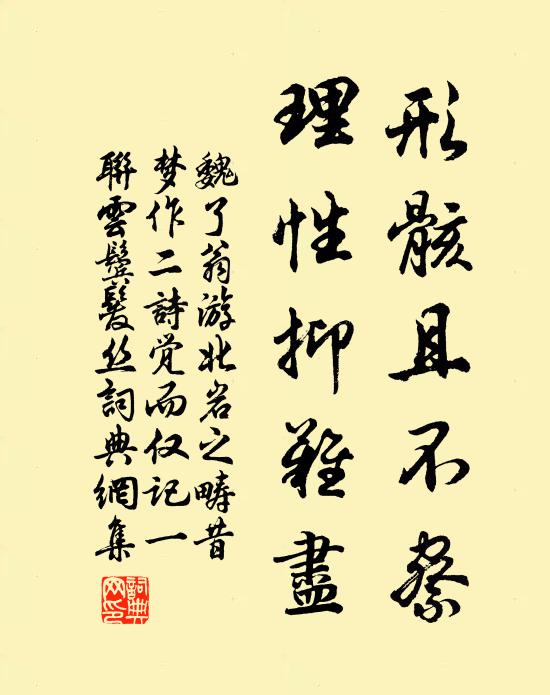 形骸且不察
理性抑難盡
魏了翁游北岩之疇昔
梦作二詩觉而仅记一
聯雲鬢髮丝詞典網集
詞典